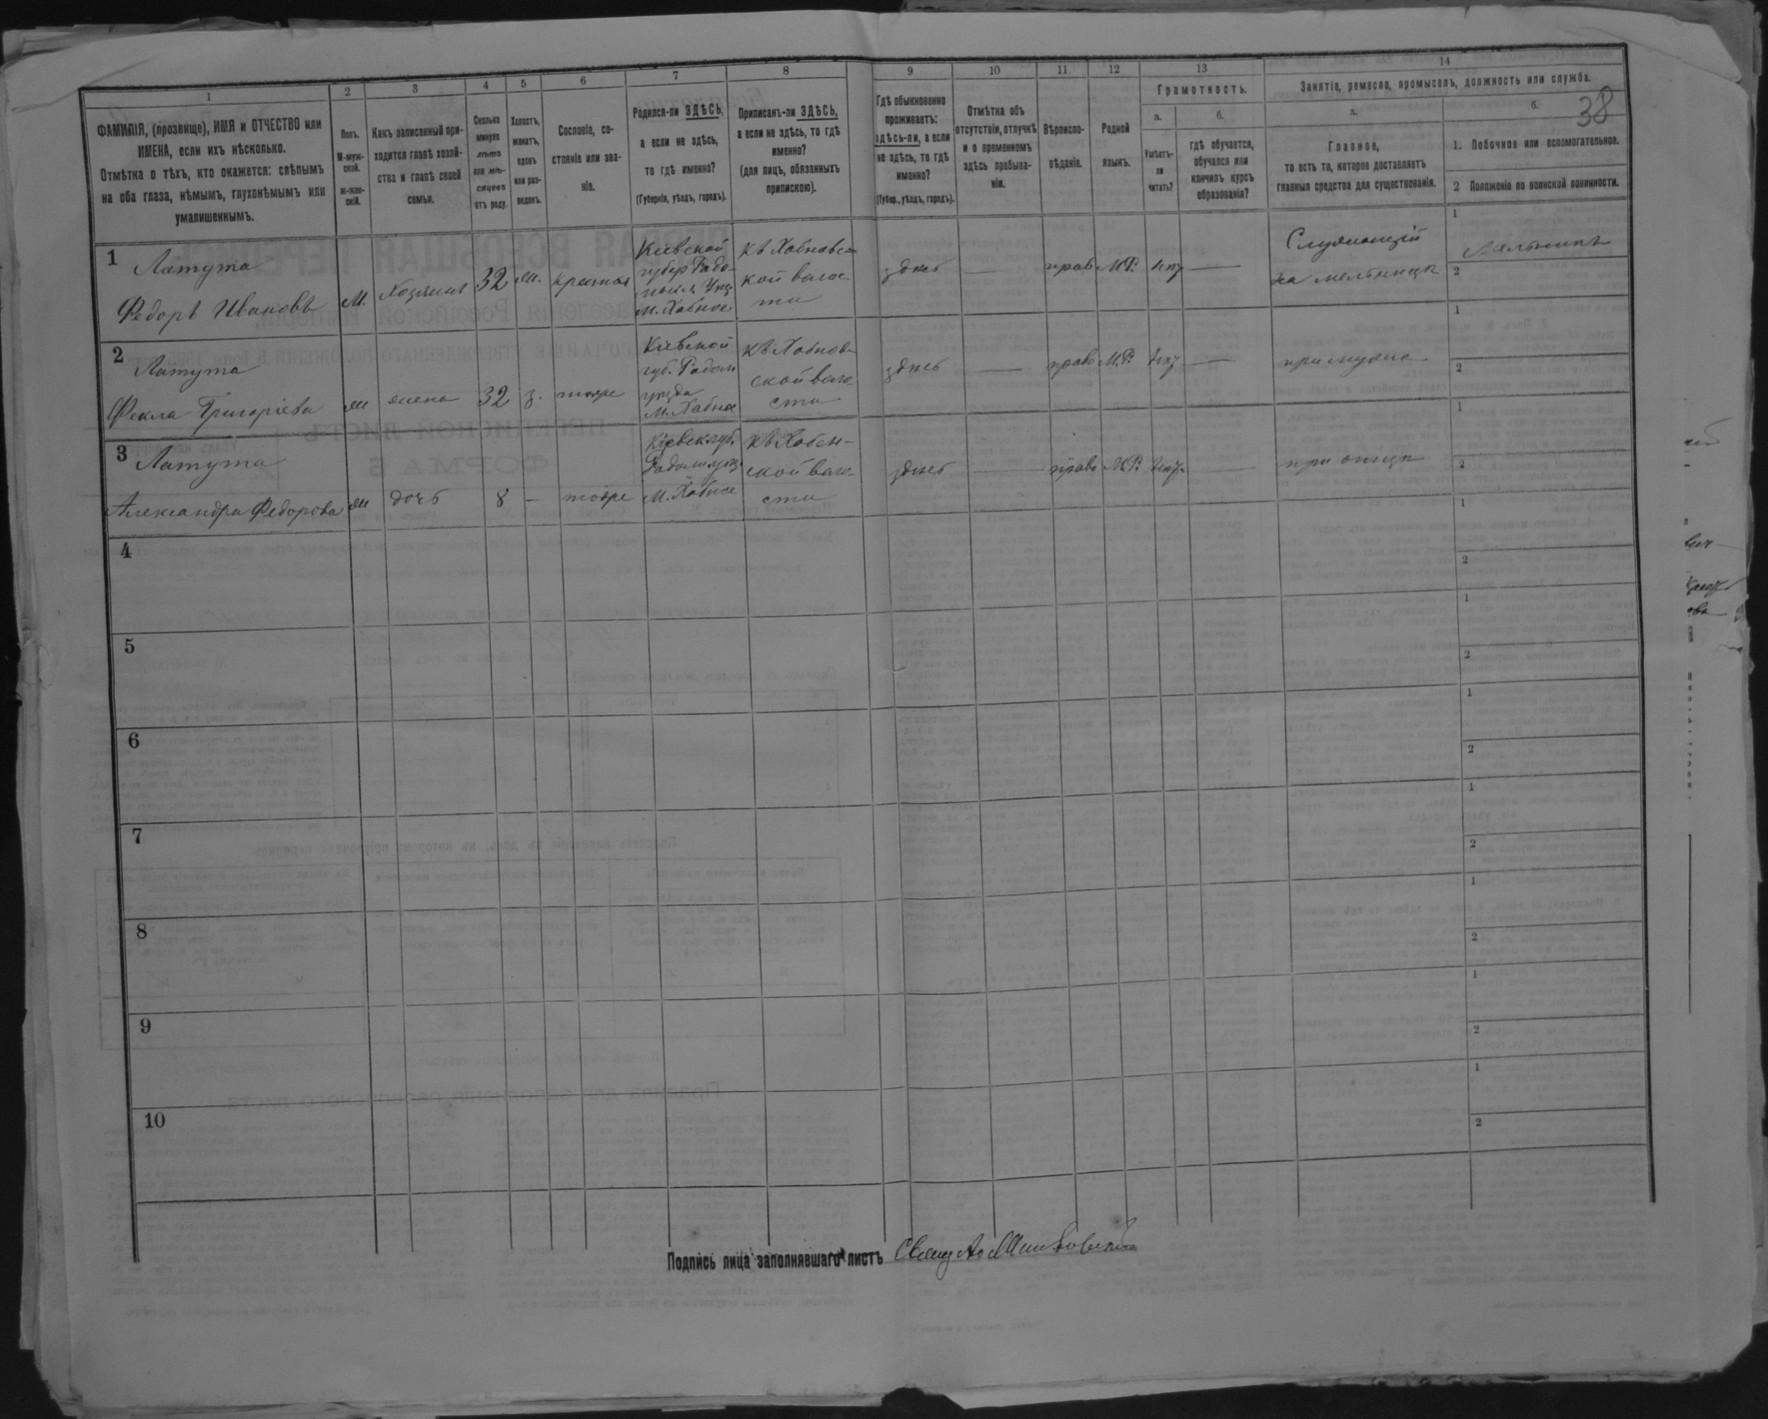 38
1 2 3 4 5 6 7 8 9 10 11 12 13 14
ФАМИЛІЯ, (прозвище), ИМЯ и ОТЧЕСТВО или
ИМЕНА, если ихъ нѣсколько.
Отмѣтка о тѣхъ, кто окажется: слѣпымъ
на оба глаза, нѣмымъ, глухонѣмымъ или
умалишеннымъ.
Полъ.
М-муж-
ской.
Ж-жен-
скій.
Какъ записанный при-
ходится главѣ хозяй-
ства и главѣ своей
семьи.
Сколько
минуло
лѣтъ
или мѣ-
сяцевъ
отъ роду.
Холостъ,
женатъ,
вдовъ
или раз-
веденъ.
Сословіе, со-
стояніе или зва-
ніе.
Родился-ли ЗДѢСЬ,
а если не здѣсь,
то гдѣ именно?
(Губернія, уѣздъ, городъ).
Приписанъ-ли ЗДѢСЬ,
а если не здѣсь, то гдѣ
именно?
(для лицъ, обязанныхъ
припискою).
Гдѣ обыкновенно
проживаетъ:
здѣсь-ли, а если
не здѣсь, то гдѣ
именно?
(Губер., уѣздъ, городъ).
Отмѣтка объ
отсутствіи, отлучкѣ
и о временномъ
здѣсь пребыва-
ніи.
Вѣроиспо-
вѣданіе.
Родной
языкъ.
Грамотность.
а.
Умѣетъ-
ли
читать?
б.
гдѣ обучается,
обучался или
кончилъ курсъ
образованія?
Занятіе, ремесло, промыселъ, должность или служба.
а.
Главное,
то есть то, которое доставляетъ
главныя средства для существованія.
б.
1. Побочное или вспомогательное.
2 Положеніе по воинской повинности.
1
Латута
Федоръ Ивановъ
М.
Хозяинъ
32
ж.
Кіевской
губер Радо-
М. Хабное
къ Хабновс-
кой волос-
ти
здѣсь
—
прав
М.Р.
—
Служащій
на мельницѣ
1
2
2
Латута
Фекла Григоріева
ж
жена
32
з.
тоже
Кіевской
губ. Радом
уѣзда
М. Хабное
къ Хабнов-
ской воло
сти
здѣсь
—
прав
М.Р.
—
при мужѣ
1
2
3
Латута
Александра Федорова
ж
дочь
8
—
тоже
Кіевск губ.
М. Хабное
къ Хабен-
ской воло
сти
здѣсь
—
прав
М.Р.
—
при отцѣ
1
2
4
1
2
5
1
2
6
1
2
7
1
2
8
1
2
9
1
2
10
1
2
Подпись лица заполнявшаго листъ